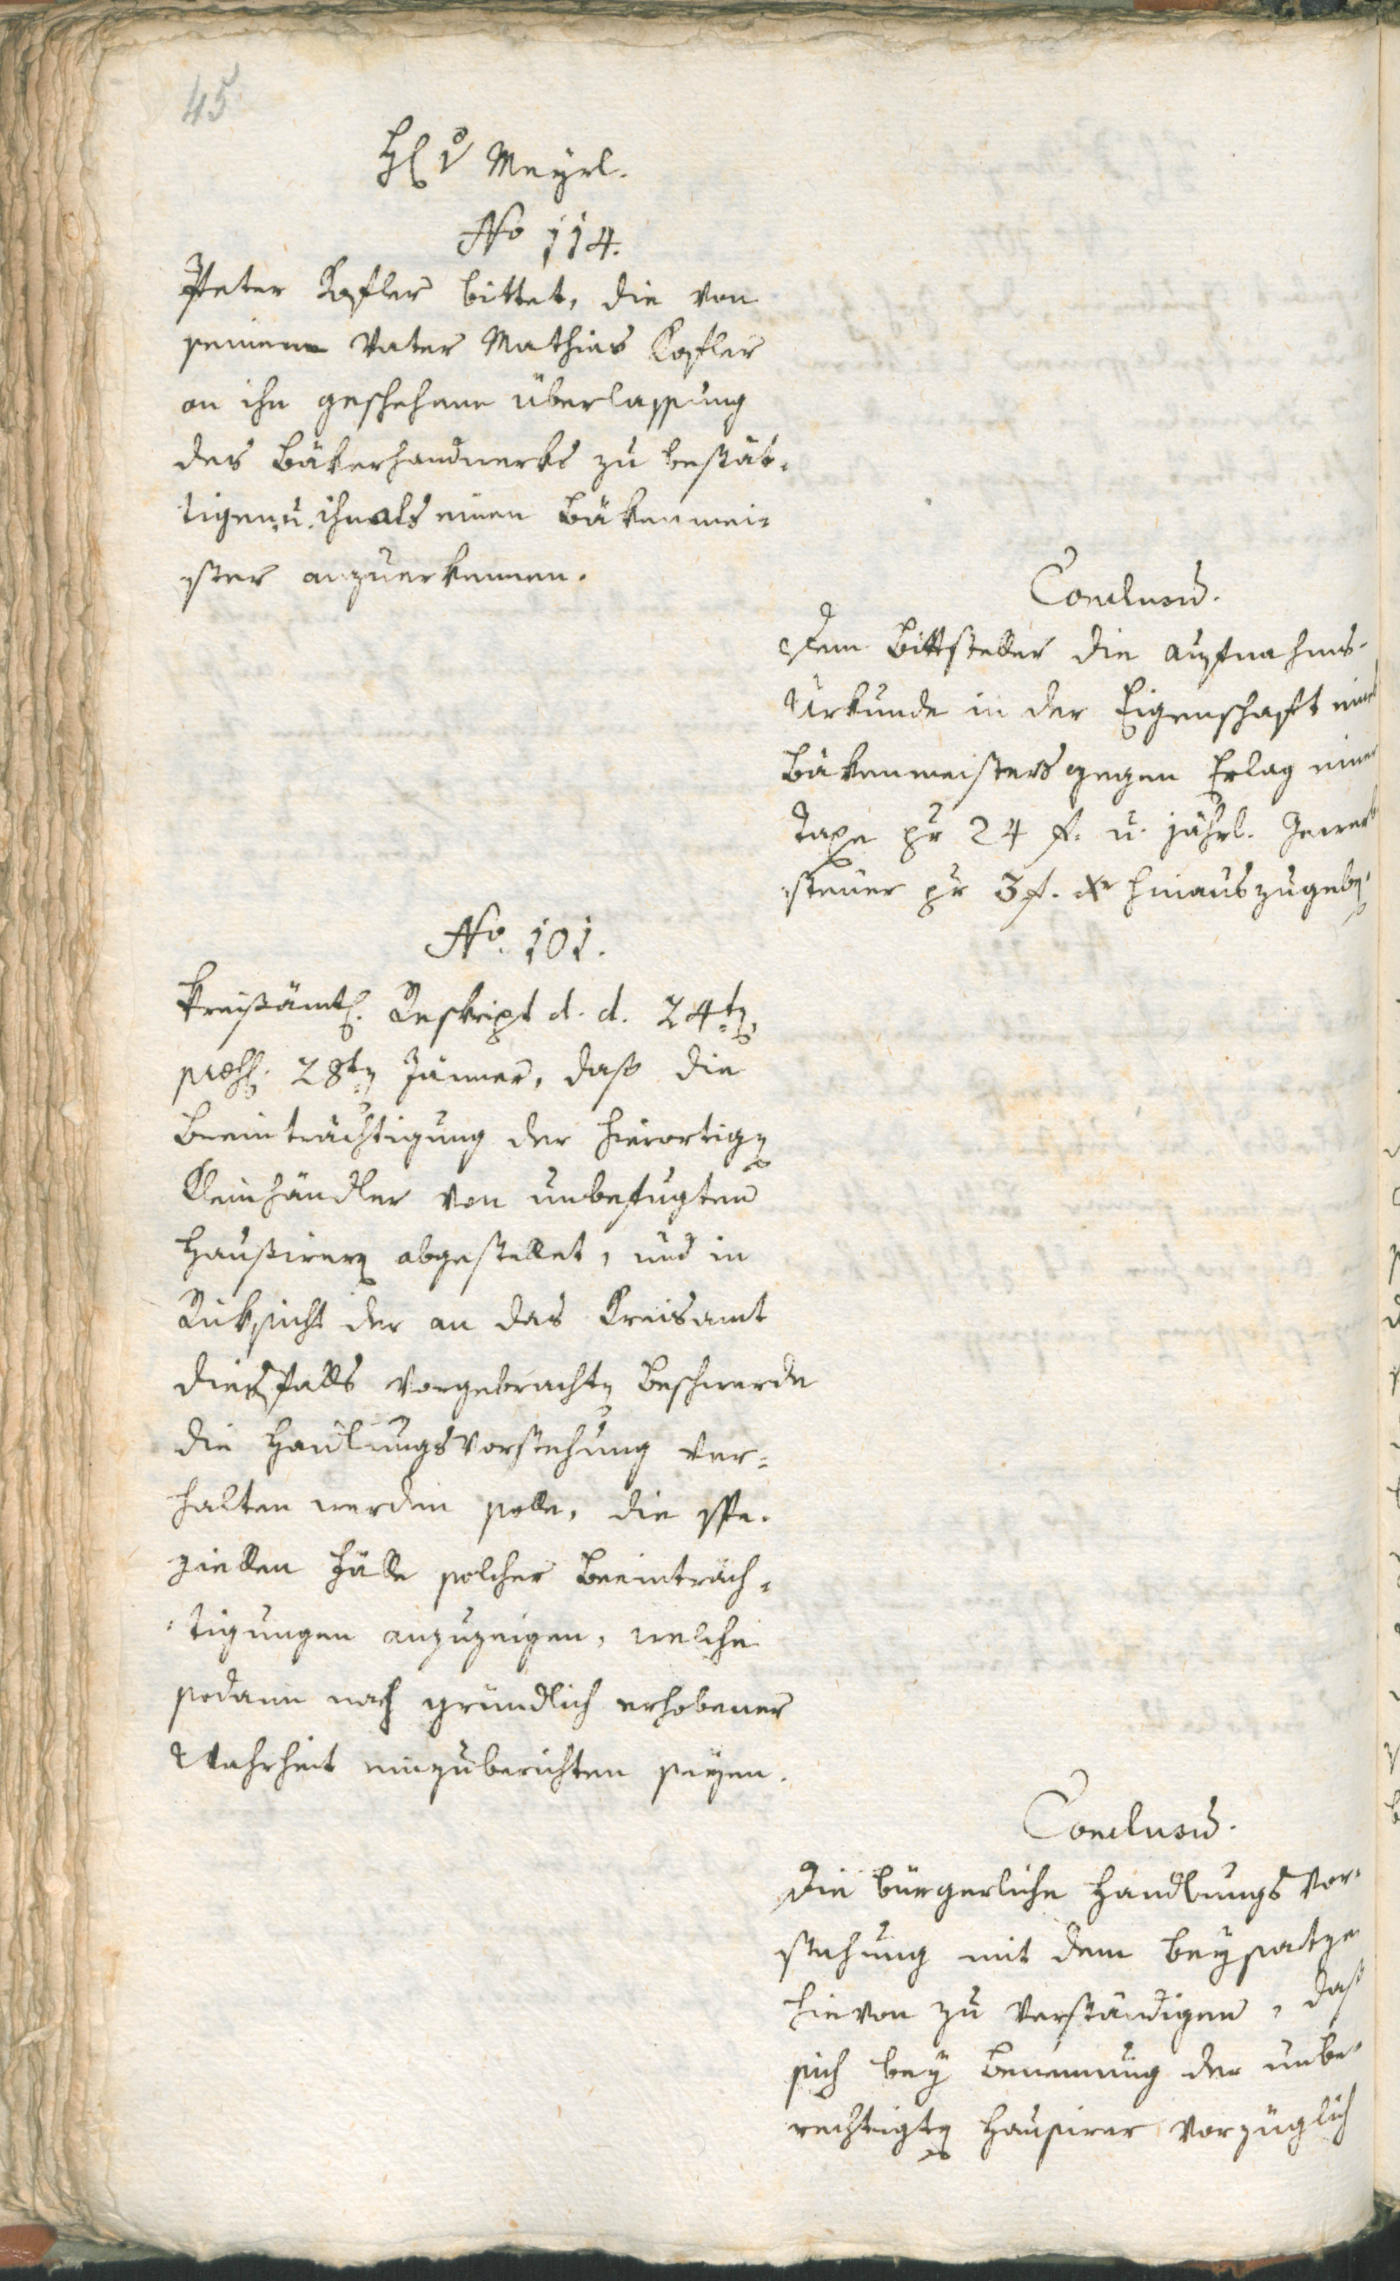 45
H v Meyrl.
No 114.
Peter Kofler bittet, die von
seinem Vater Mathias Kofler
an ihn geschehene Überlassung
des Bäkerhandwerks zu bestät-
tigen, u. ihn als einen Bäkenmei-
ster anzuerkennen.
Conclusum.
Dem Bittsteller die Aufnahms-
Urkunde in der Eigenschaft eines
Bäkenmeisters gegen Erlag einer
Taxe pr 24 f. u. jährl. Gewerb
steuer pr 3 f. xr hinauszugeben.
No. 101.
Kreisämtl. Reskript d. d. 24ten,
28ten Jänner, daß die
Beeinträchtigung der hierortigen
Kleinhändler von unbefugten
Hausirern abgestellet, und in
Rüksicht der an das Kreisamt
diesfalls vorgebrachten Beschwerde
die Handlungsvorstehung ver-
halten werden solle, die spe-
ziellen Fälle solcher Beeinträch-
tigungen anzuzeigen, welche
sodann nach gründlich erhobener
Wahrheit einzuberichten seyen.
Conclusum.
Die bürgerliche Handlungs Vor-
stehung mit dem Beysatze
hievon zu verständigen, daß
sich bey Benennung der unbe-
rechtigten Hausirer vorzüglich